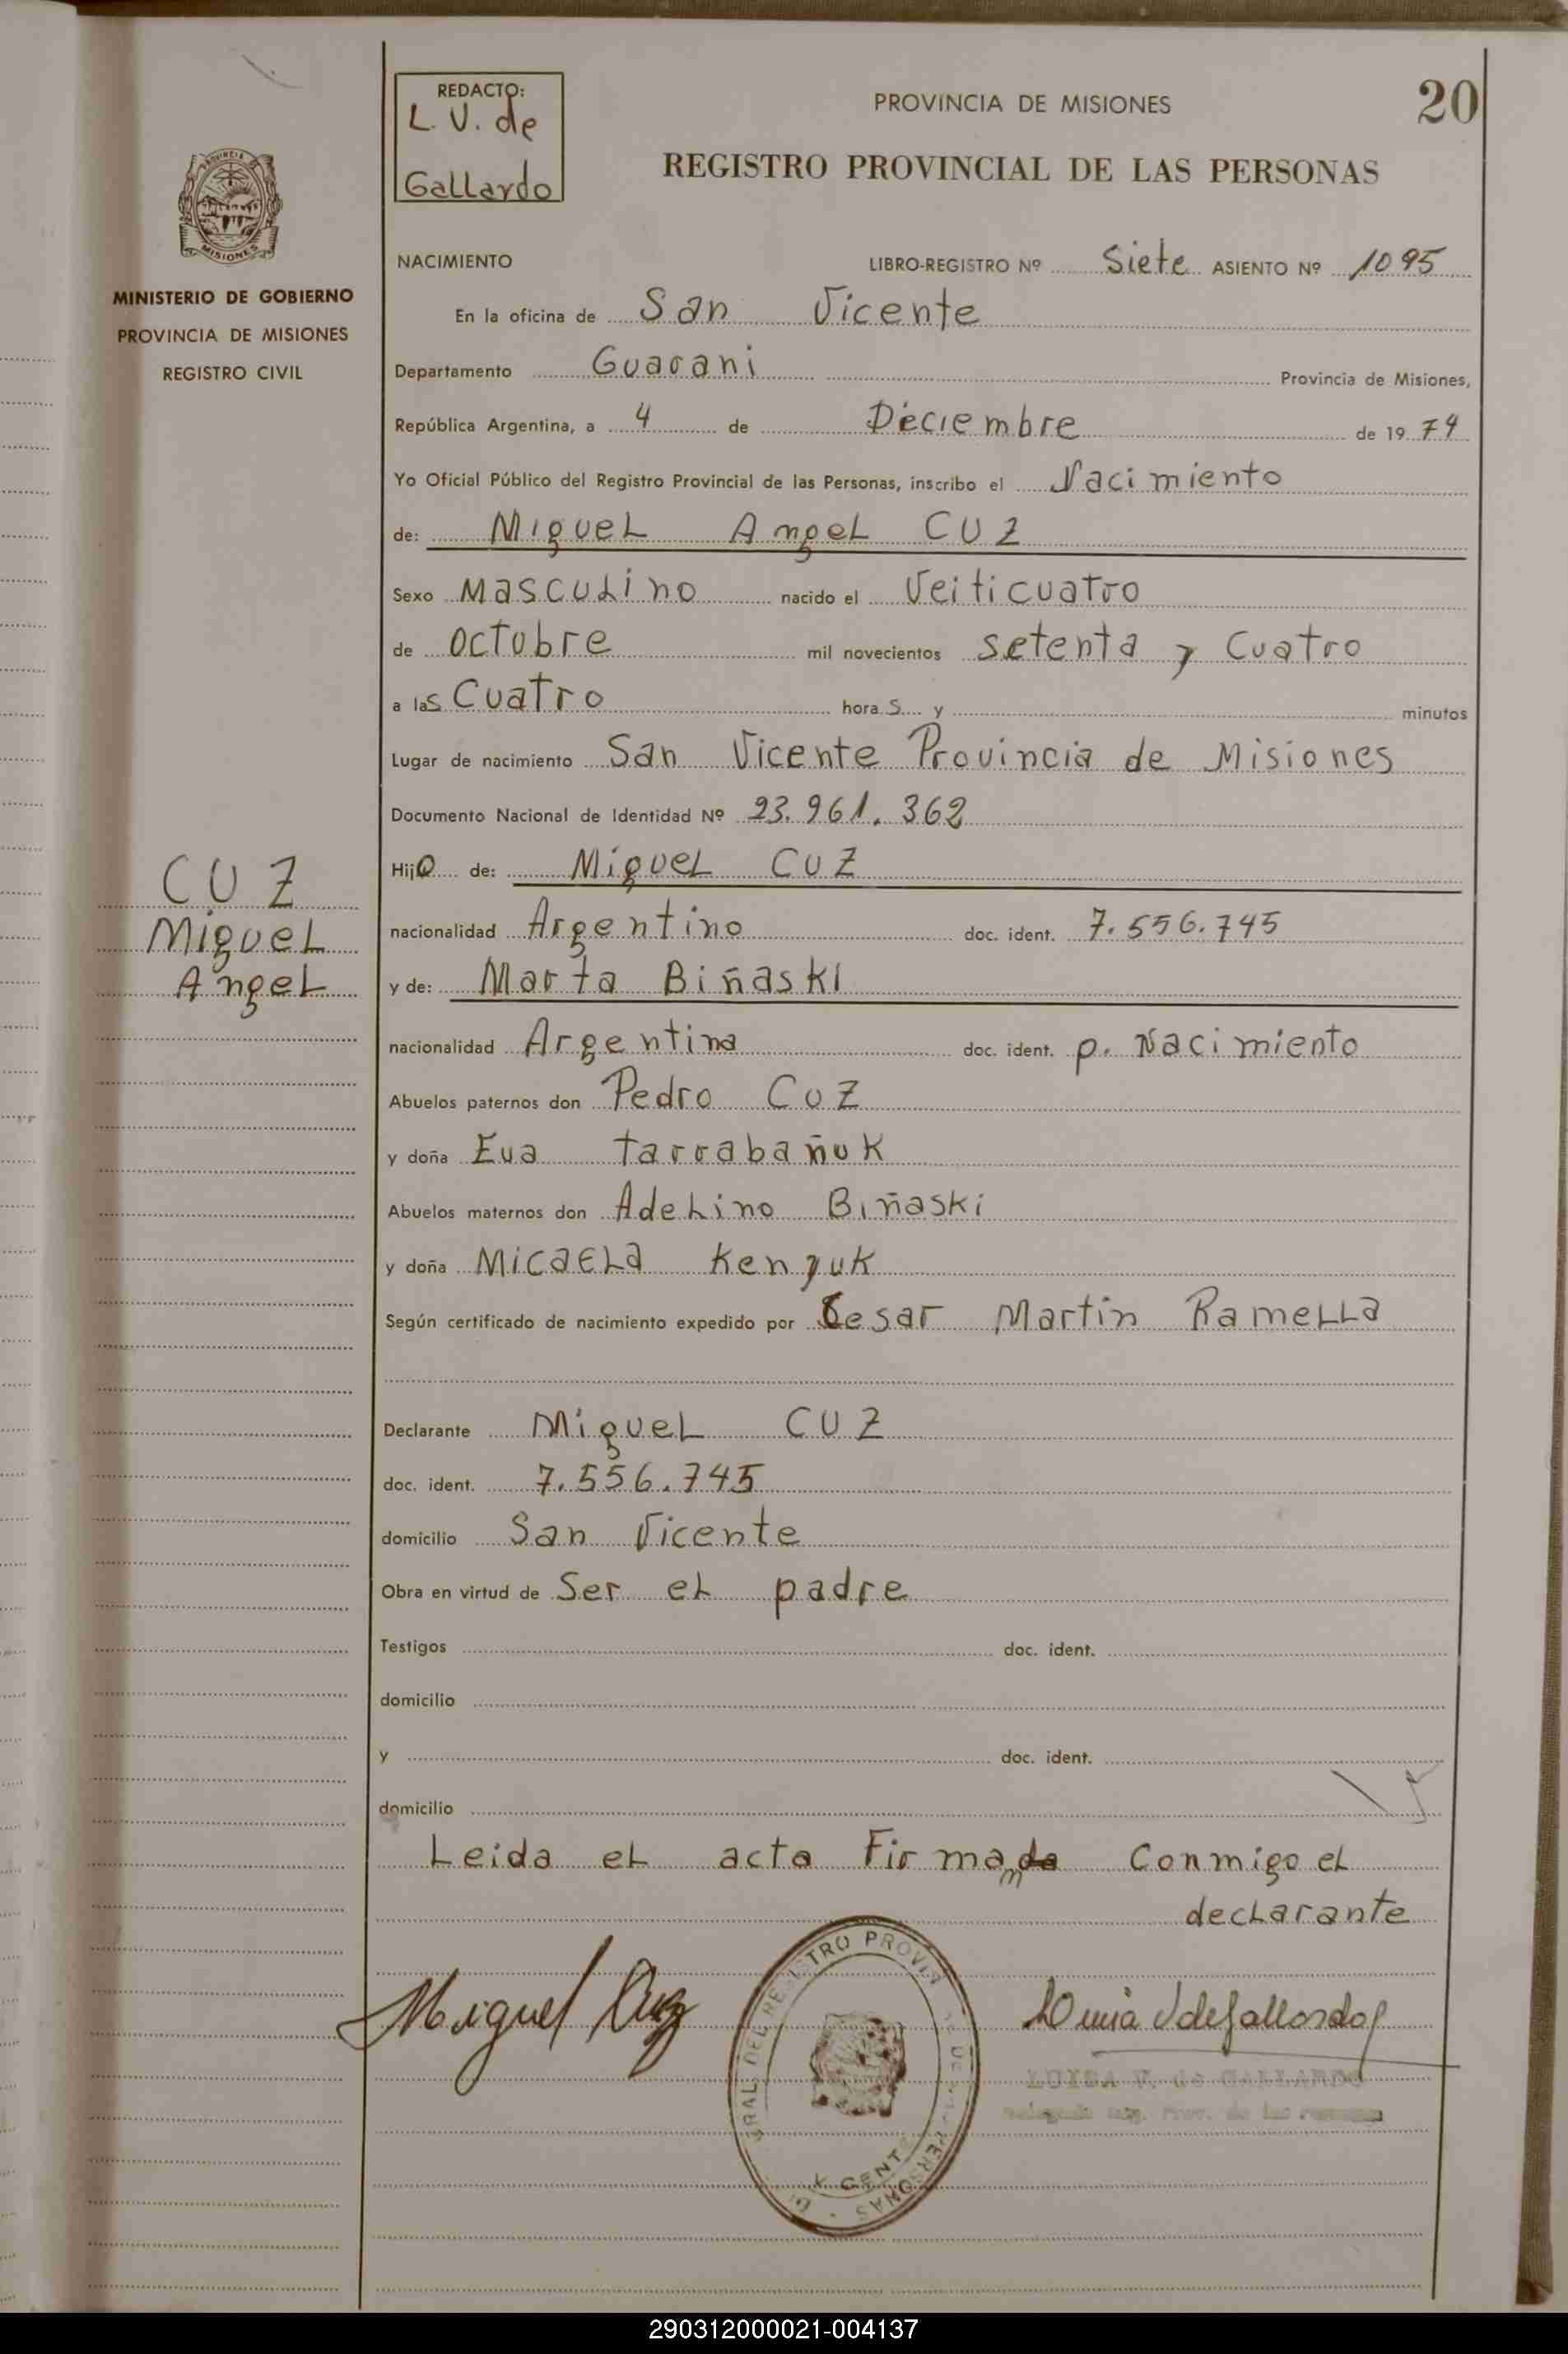 REDACTO:
L. V. de
Gallardo
PROVINCIA DE MISIONES
20
REGISTRO PROVINCIAL DE LAS PERSONAS
PROVINCIA
MISIONES
MINISTERIO DE GOBIERNO
PROVINCIA DE MISIONES
REGISTRO CIVIL
NACIMIENTO LIBRO-REGISTRO Nº Siete ASIENTO Nº 1095
En la oficina de San Vicente
Departamento Guarani Provincia de Misiones,
República Argentina, a 4 de Deciembre de 1974
Yo Oficial Público del Registro Provincial de las Personas, inscribo el Nacimiento
de: Miguel Angel CUZ
Sexo Masculino nacido el Veiticuatro
de octubre mil novecientos setenta y Cuatro
a las Cuatro horas y minutos
Lugar de nacimiento San Vicente Provincia de Misiones
Documento Nacional de Identidad Nº 23.961.362
CUZ
Miguel
Angel
Hijo de: Miguel CUZ
nacionalidad Argentino doc. ident. 7.556.745
y de: Marta Biñaski
nacionalidad Argentina doc. ident. p. Nacimiento
Abuelos paternos don Pedro CUZ
y doña Eva tarrabañuk
Abuelos maternos don Adelino Biñaski
y doña Micaela Kenyuk
Según certificado de nacimiento expedido por Cesar Martin Ramella
Declarante Miguel CUZ
doc. ident. 7.556.745
domicilio San Vicente
Obra en virtud de Ser el padre
Testigos doc. ident.
domicilio
y doc. ident.
domicilio
Leida el acta Firman Conmigo el
declarante
Miguel Cuz
LUISA V. de GALLARDO
290312000021-004137